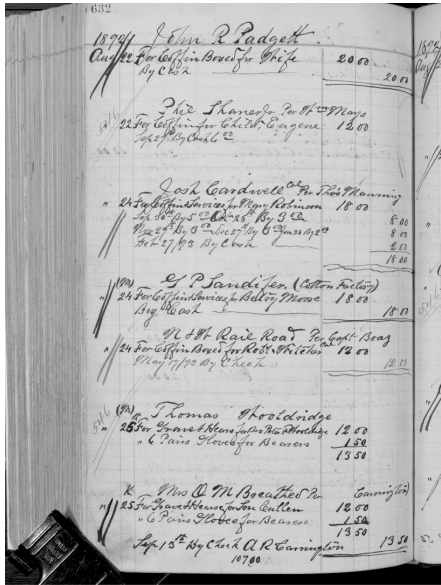 632
1892 John R Padgett
Aug 22 For Coffin Boxed for Wife 20 00
By Cash 20 00
Phil Shaner Jr Per Wm Mays
" 22 For Coffin for Child, Eugene 12 00
Sep 29th By Cash 6 00
Josh Cardwell Col Per Thos Manning
" 24 For Coffin & Services for Mary Robinson 18 00
Sep 30th By 5 00 Oct 28th By 3 00 8 00
Nov 29th By 3 00 Dec 29th By 3 00 Jan 28 By 2 00 8 00
Feb 27/93 By Cash 2 00
18 00
G P Sandifer. (Cotton Factory)
" 24 For Coffin & Services for Betsy Moose 18 00
By Cash 18 00
N & W Rail Road Per Capt Boaz
" 24 For Coffin Boxed for Robt Col 12 00
May 17/93 By Check 12 00
546
Thomas Wooldridge
" 25 For Grave & Hearse for Wooldridge 12 00
" 6 Pairs Gloves for Bearers 1 50
13 50
Mrs O M Breathed Per Carrington
" 25 For Grave & Hearse for Son Cullen 12 00
" 6 Pairs Gloves for Bearers 1 50
13 50
Sep 13th By Check A R Carrington 13 50
107 00